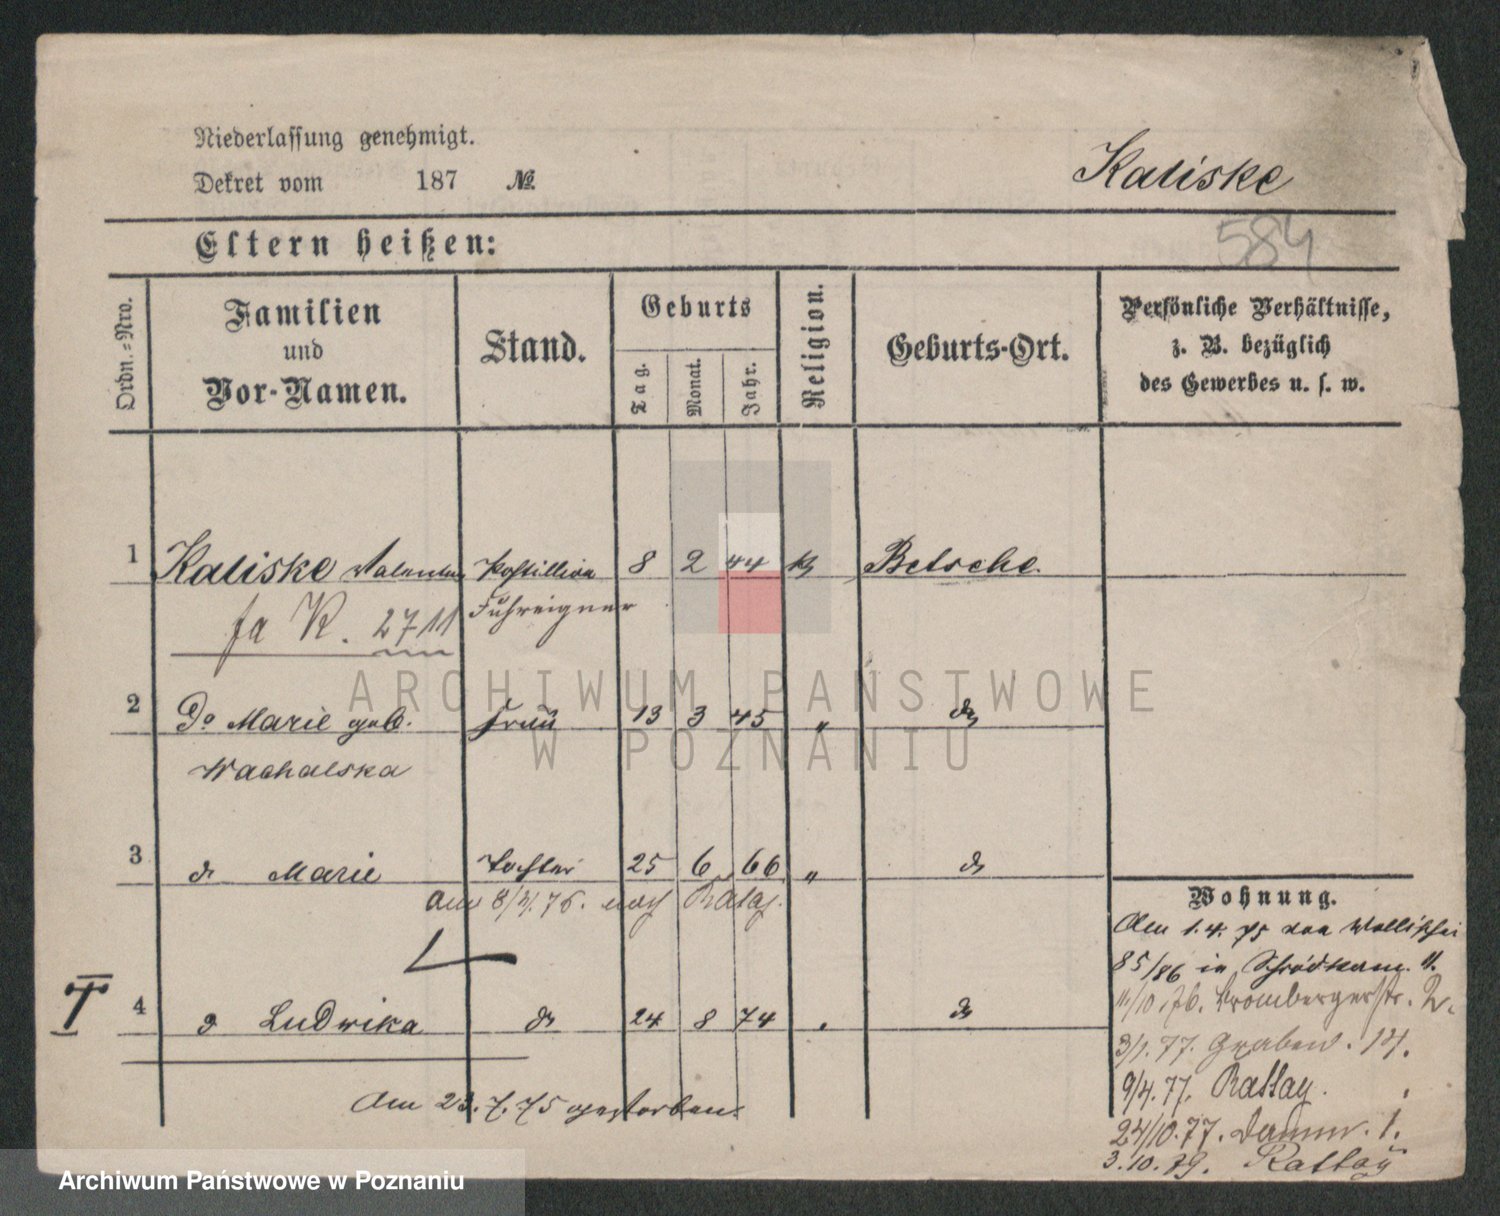 Niederlassung genehmigt.
Dekret vom 187 №
Kaliske
584
Eltern heißen:
Ordn.-Nro.
Familien
und
Vor-Namen.
Stand.
Geburts
Tag.
Monat.
Jahr.
Religion.
Geburts-Ort.
Persönliche Verhältnisse,
z. B. bezüglich
des Gewerbes u. s. w.
1 Kaliske Valentin Postillion 8 2 44 k Betsche.
fa K. 2711
2 Do Marie geb. Frau 13 3 45 " do
Wachalska
3 do Marie Tochter 25 6 66 " do
am 8/4. 76. nach Rataj.
T 4 do Ludwika do 24 8 74 " do
Am 23. 7. 75 gestorben.
Wohnung.
Am 1. 4. 75 von Wallischei
85/86 in Schrodkam. 11.
11/10. 76. Brombergerstr. 2.
3/1. 77. Graben. 14.
9/4. 77. Rattay.
24/10. 77. Damm. 1.
3. 10. 79. Rattay
ARCHIWUM PAŃSTWOWE
W POZNANIU
Archiwum Państwowe w Poznaniu